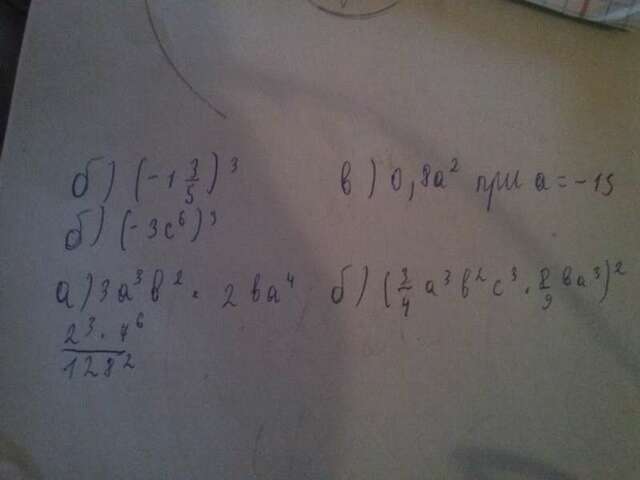 б) (-1 3/5)³ в) 0,8a² при a = -15
б) (-3c⁶)³
а) 3a³b² · 2ba⁴ б) (3/4 a³b²c³ · 8/9 ba³)²
2³ · 4⁶ / 128²